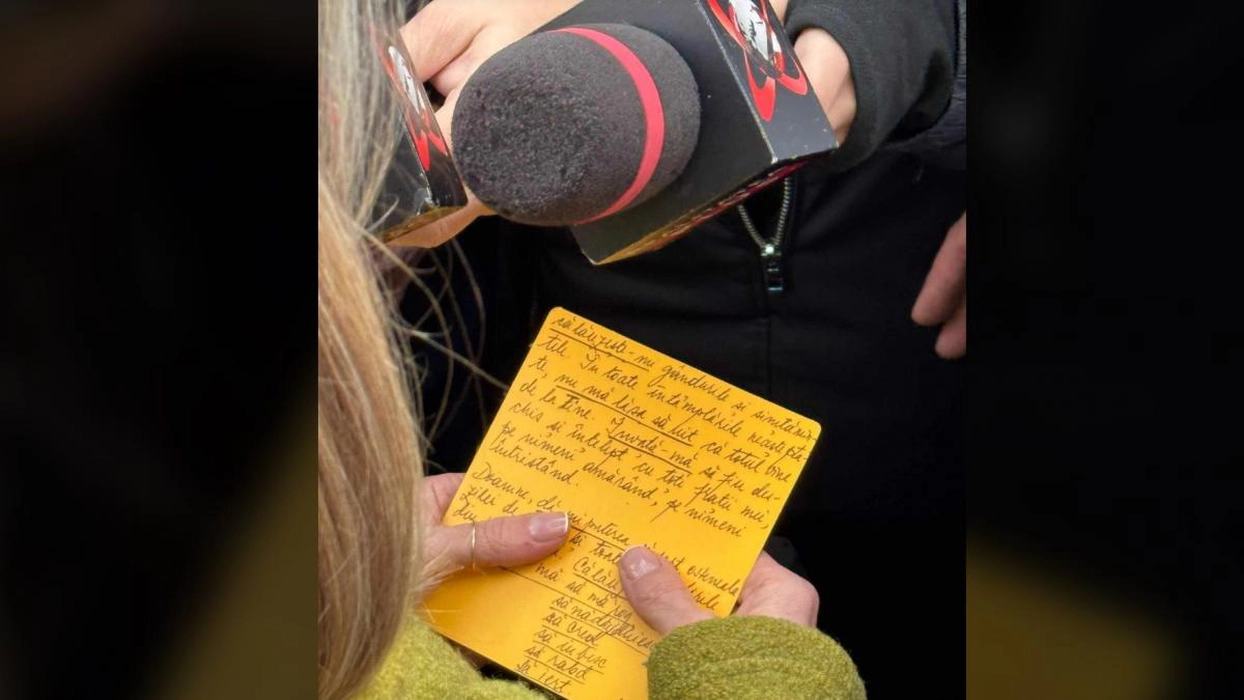 călăuzește-mi gândurile și simțămin-
tele. În toate întâmplările neaștepta-
te, nu mă lăsa să uit că totul vine
de la Tine. Învață-mă să fiu des-
chis și înțelept cu toți frații mei,
pe nimeni amărând, pe nimeni
întristând.
Doamne, puterea osteneala
zilei de și toate
mă să mă
să nădăjduiesc
să cred
să iubesc
să rabd
să iert